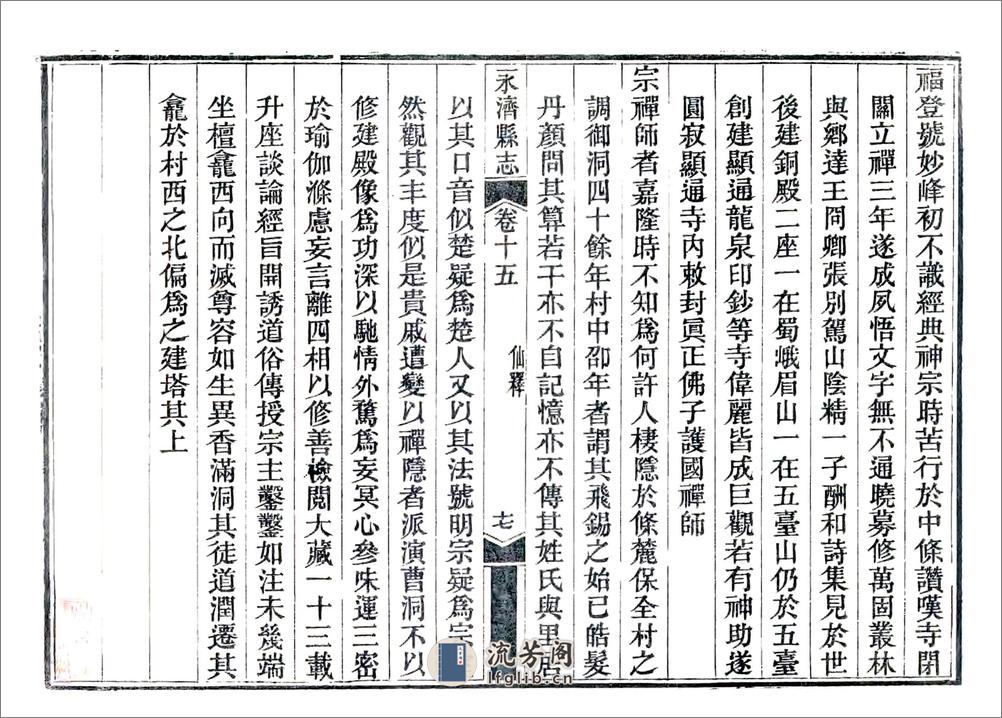 福登號妙峰初不識經典神宗時苦行於中條讚嘆寺閉
關立禪三年遂成夙悟文字無不通曉募修萬固叢林
與鄭達王冏卿張別駕山陰精一子酬和詩集見於世
後建銅殿二座一在蜀峨眉山一在五臺山仍於五臺
創建顯通龍泉印鈔等寺偉麗皆成巨觀若有神助遂
圓寂顯通寺內敕封眞正佛子護國禪師
宗禪師者嘉隆時不知爲何許人棲隱於條麓保全村之
調御洞四十餘年村中卲年者謂其飛錫之始已皓髮
丹顏問其算若干亦不自記憶亦不傳其姓氏與里居
永濟縣志 卷十五 仙釋 十七
以其口音似楚疑爲楚人又以其法號明宗疑爲宗
然觀其丰度似是貴戚遭變以禪隱者派演曹洞不以
修建殿像爲功深以馳情外騖爲妄冥心參味運三密
於瑜伽滌慮妄言離四相以修善檢閱大藏一十三載
升座談論經旨開誘道俗傳授宗主鑿鑿如注未幾端
坐檀龕西向而滅尊容如生異香滿洞其徒道潤遷其
龕於村西之北偏爲之建塔其上
流芳阁
lfglib.cn